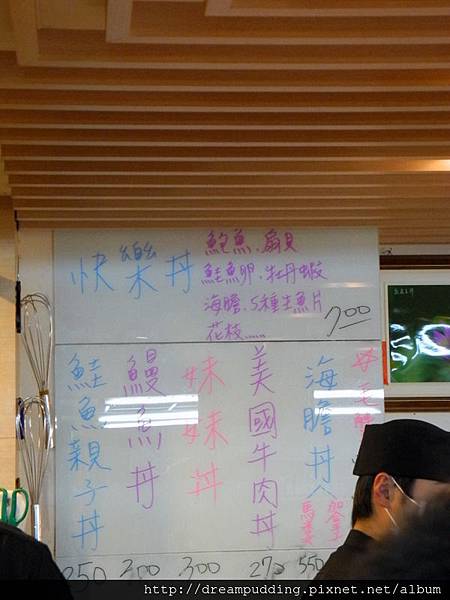 快樂丼
鮑魚、扇貝
鮭魚卵、牡丹蝦
海膽、5種生魚片
花枝......
700
鮭魚親子丼
250
鰻魚丼
300
妹妹丼
300
美國牛肉丼
270
海膽丼
550
http://dreampudding.pixnet.net/album